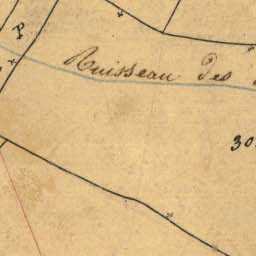 Ruisseau des
30